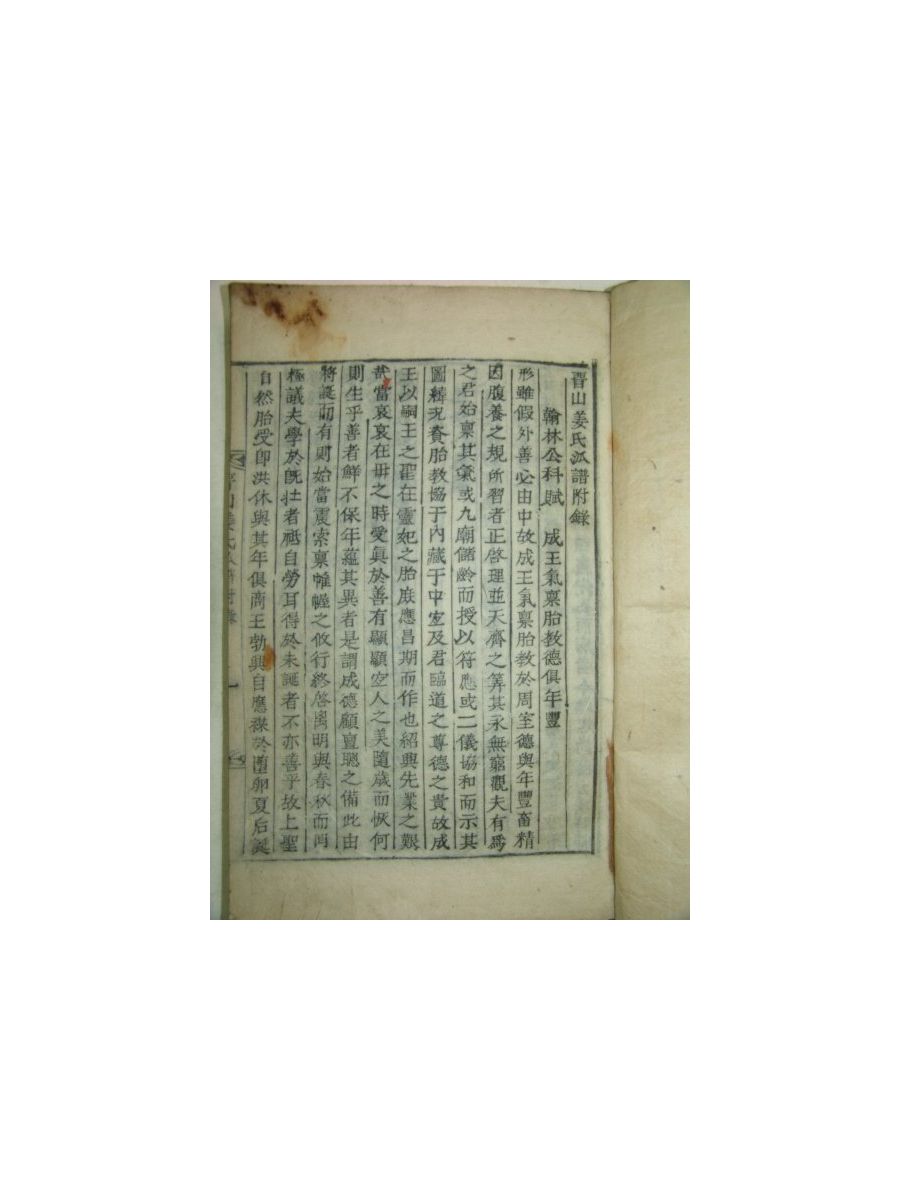 晋山姜氏派譜附錄
翰林公科賦 成王氣禀胎教德俱年豐
形雖假外善必由中故成王氣禀胎教於周室德與年豊畜精
因腹養之規所習者正啓理並天齊之筭其永無窮觀夫有爲
之君始禀其氣或九廟儲齡而授以符應或二儀協和而示其
圖緯况賚胎教協于內藏于中宝及君臨道之尊德之貴故成
王以嗣王之聖在靈妃之胎庶應昌期而作也紹興先業之艱
哉當哀哀在毋之時受眞於善有顯顯空人之美隨歲而恢何
則生乎善者鮮不保年蘊其異者是謂成德顧亶聰之備此由
將誕而有則始當震索禀帷幄之攸行終啓离明與春秋而
極議夫學於旣壯者祗自勞耳得於未誕者不亦善乎故上聖
自然胎受即洪休與其年俱商王勃興自應祿於墮卵夏后誕
山姜氏派譜附錄 一